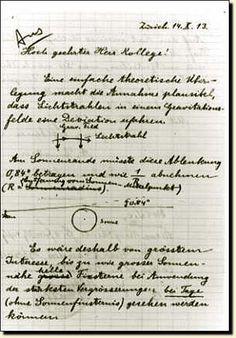 Zürich. 14. X. 13.
Hoch geehrter Herr Kollege!
Eine einfache theoretische Über-
legung macht die Annahme plausibel,
dass Lichtstrahlen in einem Gravitations-
felde eine Deviation erfahren.
Grav. Feld
Lichtstrahl
Am Sonnenrande müsste diese Ablenkung
0,84" betragen und wie 1/R abnehmen
(R = Sonnenradius).
Mittelpunkt
0.84"
Sonne
Es wäre deshalb von grösstem
Interesse, bis zu wie grosser Sonnen-
nähe helle Fixsterne bei Anwendung
der stärksten Vergrösserungen bei Tage
(ohne Sonnenfinsternis) gesehen werden
können.